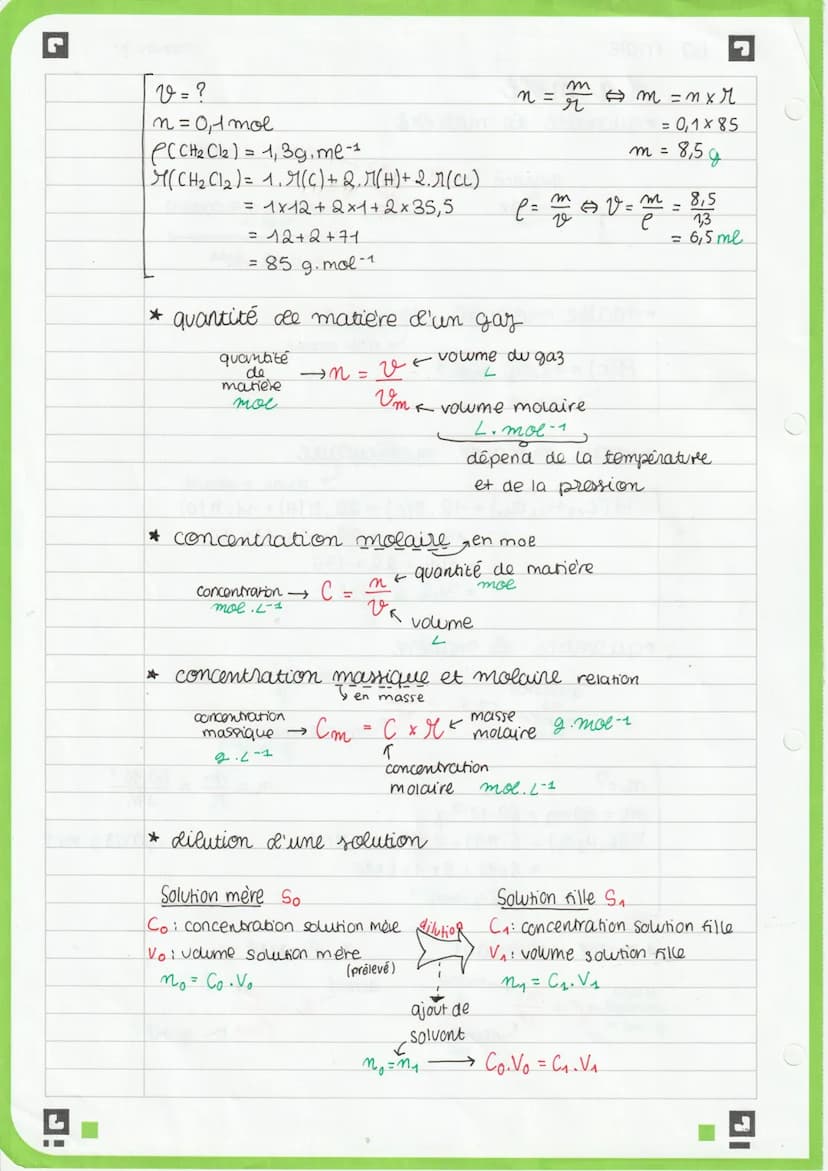 V = ?
n = 0,1 mol
ρ(CH2Cl2) = 1,3g.ml⁻¹
M(CH2Cl2) = 1.M(C) + 2.M(H) + 2.M(CL)
= 1×12 + 2×1 + 2×35,5
= 12+2+71
= 85 g.mol⁻¹
n = m/M ⇔ m = n × M
= 0,1 × 85
m = 8,5 g
ρ = m/V ⇔ V = m/ρ = 8,5/1,3
= 6,5 ml
* quantité de matière d'un gaz
quantité de matière mol → n = V/Vm
← volume du gaz
L
← volume molaire
L.mol⁻¹
dépend de la température
et de la pression
* concentration molaire → en mol
concentration → C = n/V ← quantité de matière
mol.L⁻¹
mol
volume
L
* concentration massique et molaire relation
↳ en masse
concentration massique → Cm = C × M ← masse molaire g.mol⁻¹
g.L⁻¹
↑
concentration
molaire mol.L⁻¹
* dilution d'une solution
Solution mère S0
C0 : concentration solution mère
V0 : volume solution mère
(prélevé)
n0 = C0.V0
dilution
Solution fille S1
C1 : concentration solution fille
V1 : volume solution fille
n1 = C1.V1
ajout de
solvant
n0 = n1 → C0.V0 = C1.V1